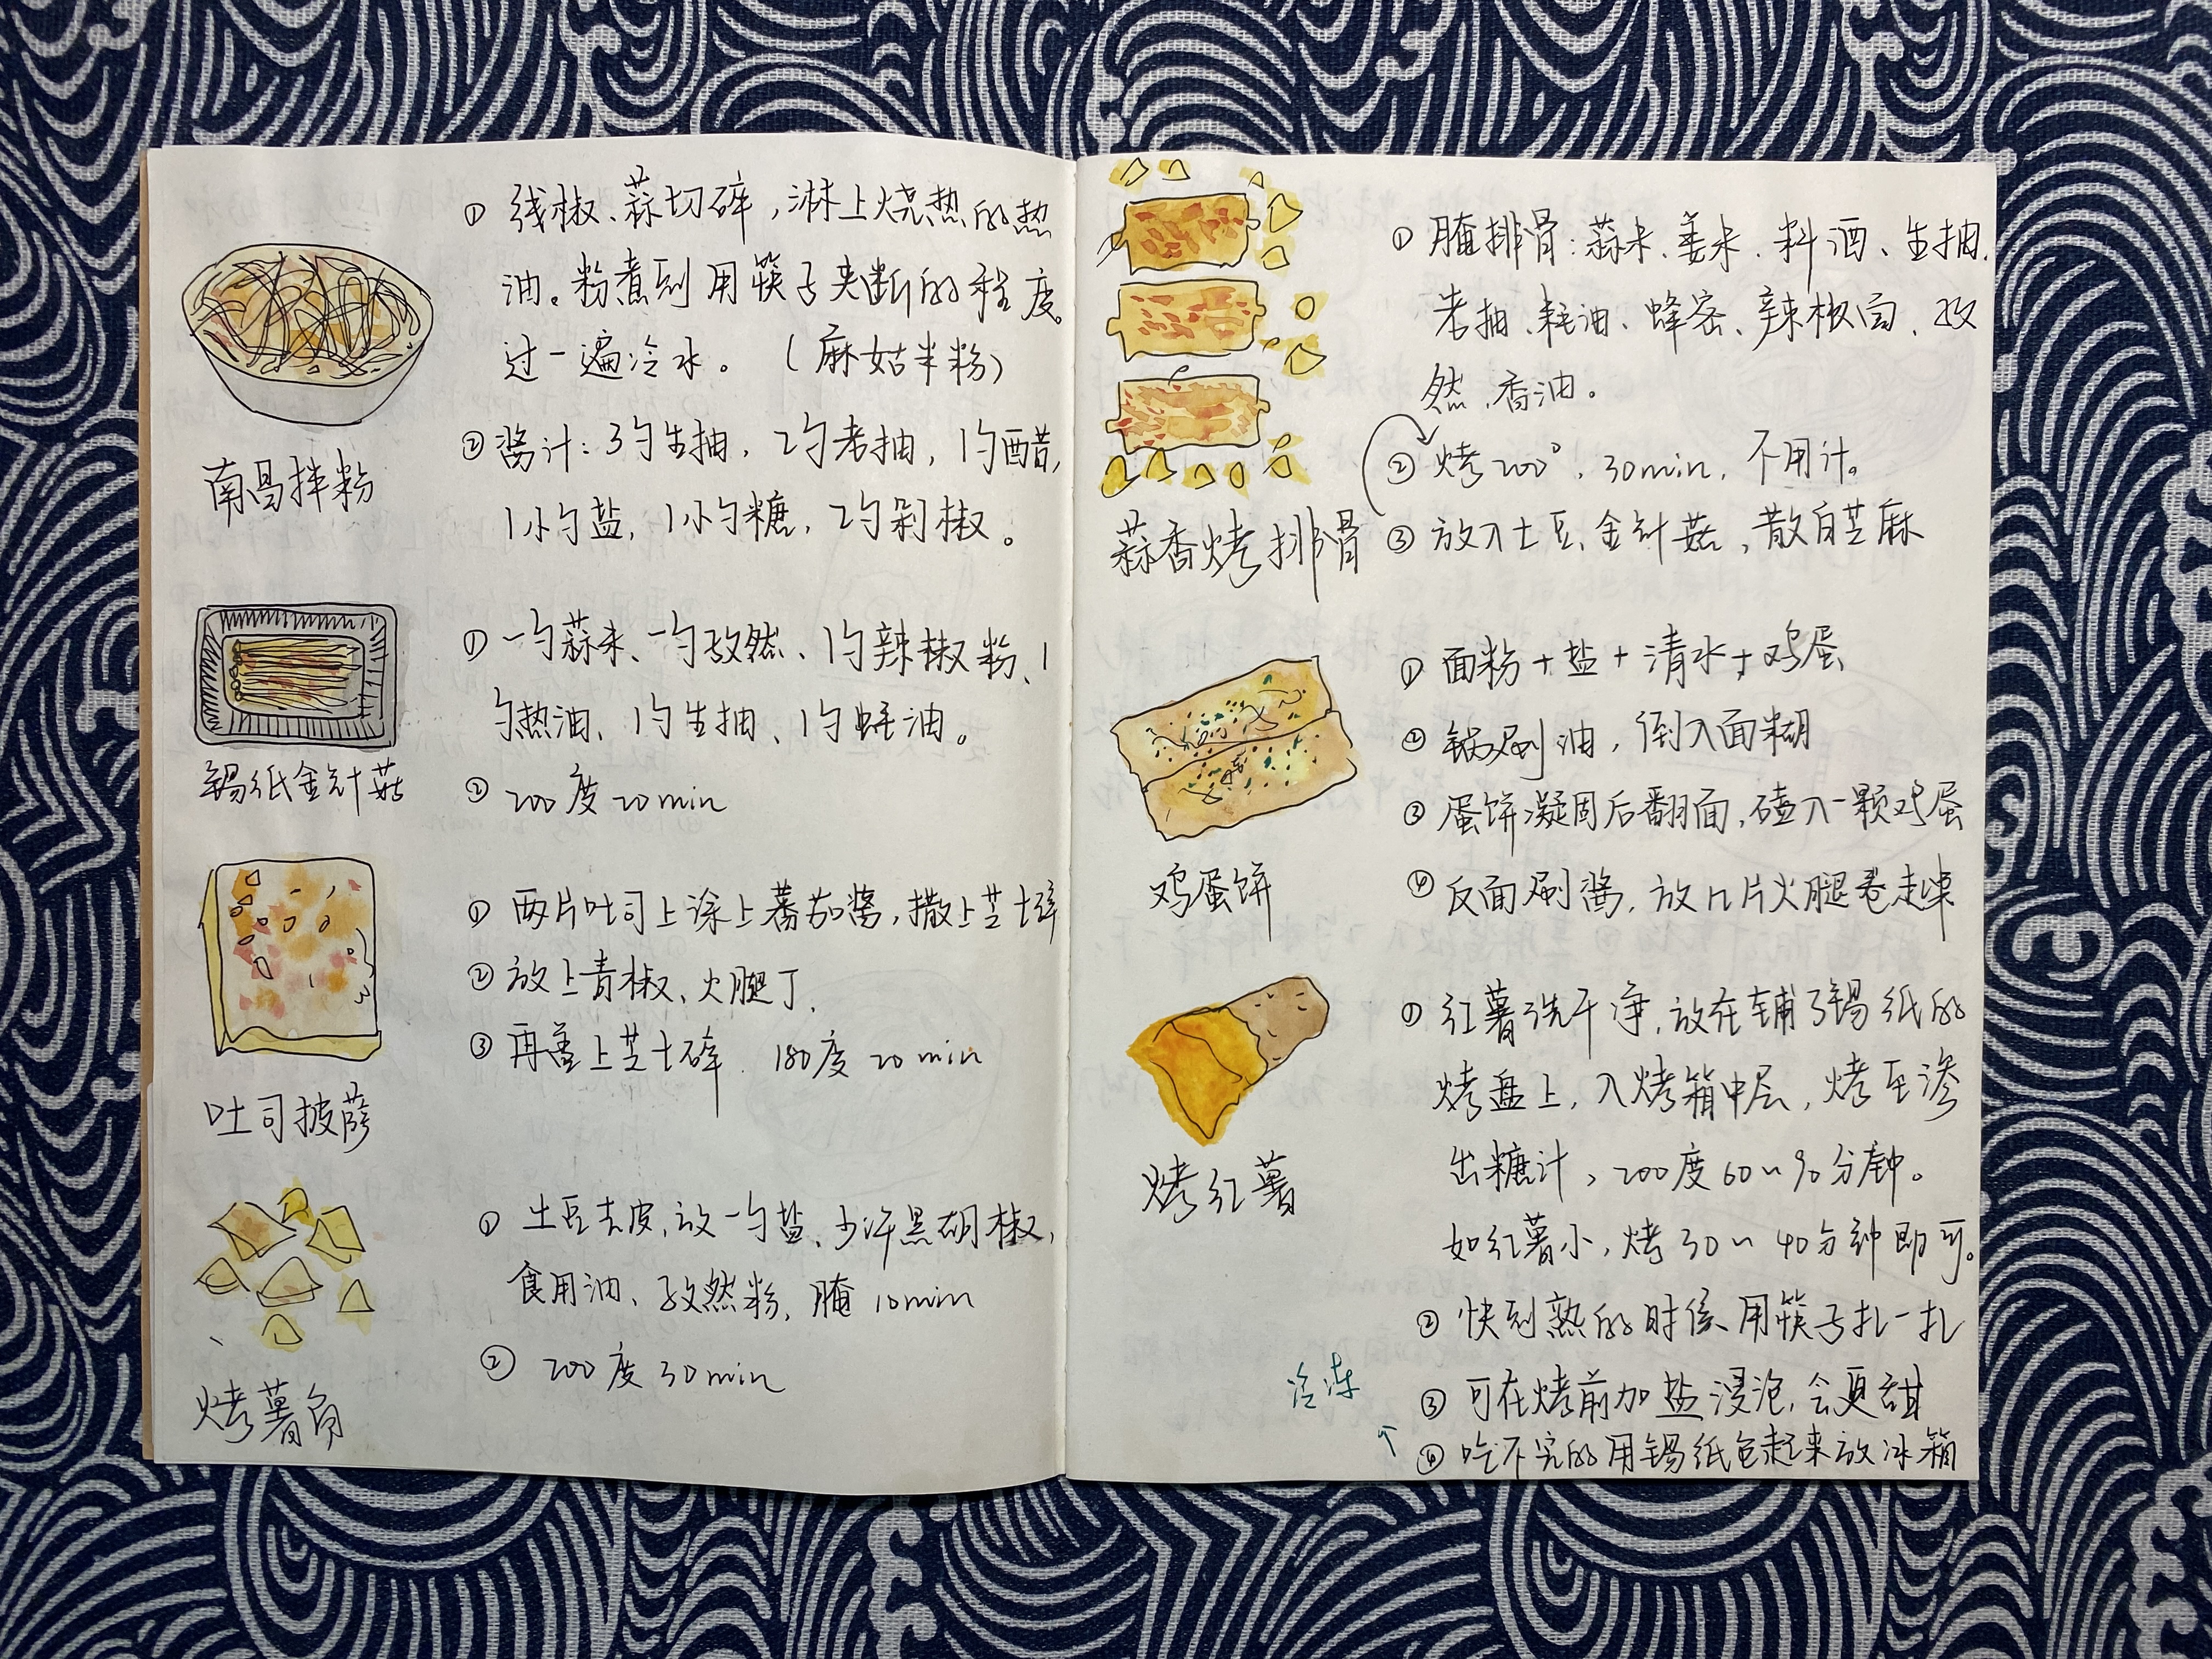 南昌拌粉
① 线椒、蒜切碎，淋上烧热的热
油。粉煮到用筷子夹断的程度。
过一遍冷水。（麻姑米粉）
② 酱汁：3勺生抽，2勺老抽，1勺醋，
1小勺盐，1小勺糖，2勺剁椒。
锡纸金针菇
① 一勺蒜末、一勺孜然、1勺辣椒粉、1
勺热油、1勺生抽、1勺蚝油。
② 200度20min
吐司披萨
① 两片吐司上涂上蕃茄酱，撒上芝士碎
② 放上青椒、火腿丁，
③ 再盖上芝士碎．180度20min
烤薯角
① 土豆去皮，放一勺盐、少许黑胡椒，
食用油、孜然粉，腌10min
② 200度30min
蒜香烤排骨
① 腌排骨：蒜末、姜末、料酒、生抽，
老抽、耗油、蜂密、辣椒面、孜
然、香油。
② 烤200°，30min，不用汁。
③ 放入土豆、金针菇，散白芝麻
鸡蛋饼
① 面粉+盐+清水+鸡蛋
② 锅刷油，倒入面糊
③ 蛋饼凝固后翻面，磕入一颗鸡蛋
④ 反面刷酱，放几片火腿卷起来
烤红薯
① 红薯洗干净，放在铺了锡纸的
烤盘上，入烤箱中层，烤至渗
出糖汁，200度60~90分钟。
如红薯小，烤30~40分钟即可。
② 快到熟的时候用筷子扎一扎
③ 可在烤前加盐浸泡，会更甜
④ 吃不完的用锡纸包起来放冰箱
↑
冷冻